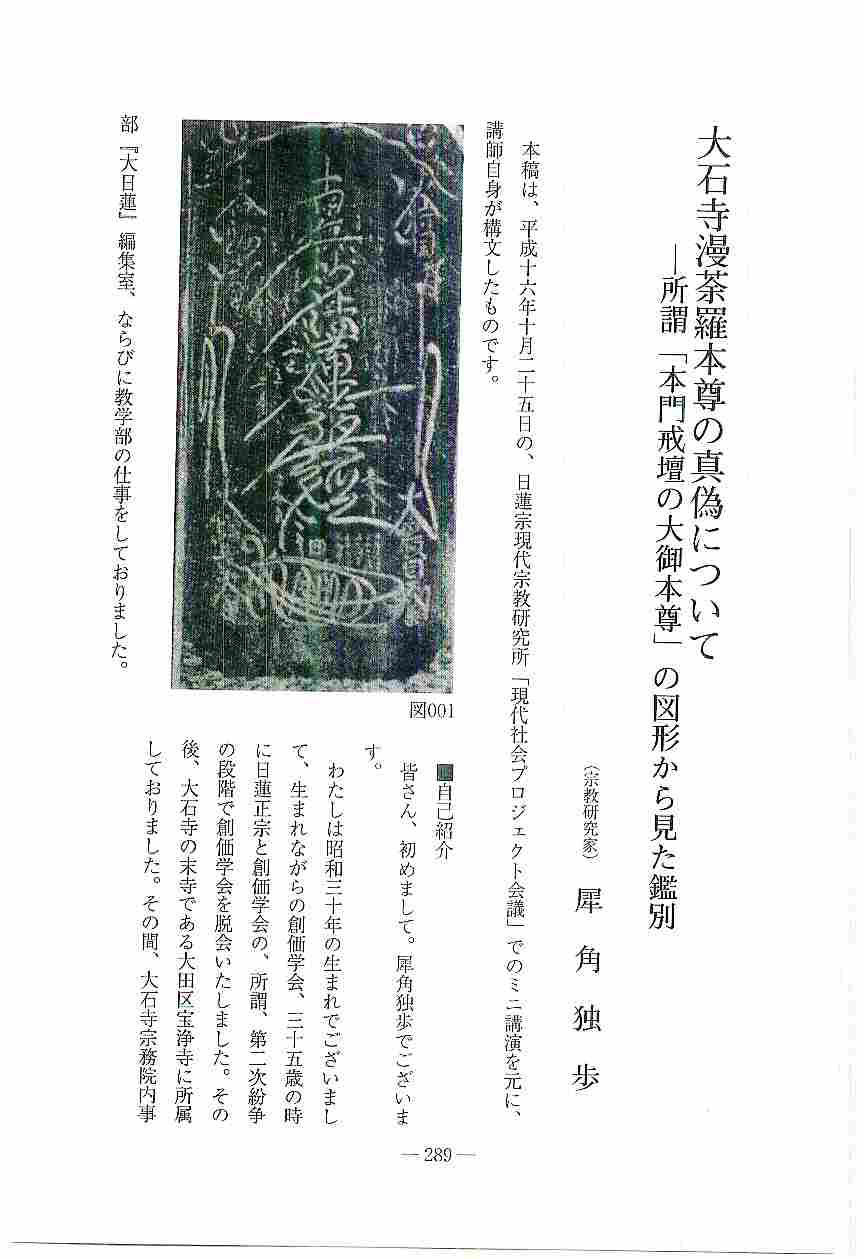 大石寺漫荼羅本尊の真偽について
―所謂「本門戒壇の大御本尊」の図形から見た鑑別
（宗教研究家）　犀角独歩
本稿は、平成十六年十月二十五日の、日蓮宗現代宗教研究所「現代社会プロジェクト会議」でのミニ講演を元に、
講師自身が構文したものです。
図001
■自己紹介
皆さん、初めまして。犀角独歩でございま
す。
わたしは昭和三十年の生まれでございまし
て、生まれながらの創価学会、三十五歳の時
に日蓮正宗と創価学会の、所謂、第二次紛争
の段階で創価学会を脱会いたしました。その
後、大石寺の末寺である大田区宝浄寺に所属
しておりました。その間、大石寺宗務院内事
部『大日蓮』編集室、ならびに教学部の仕事をしておりました。
―289―